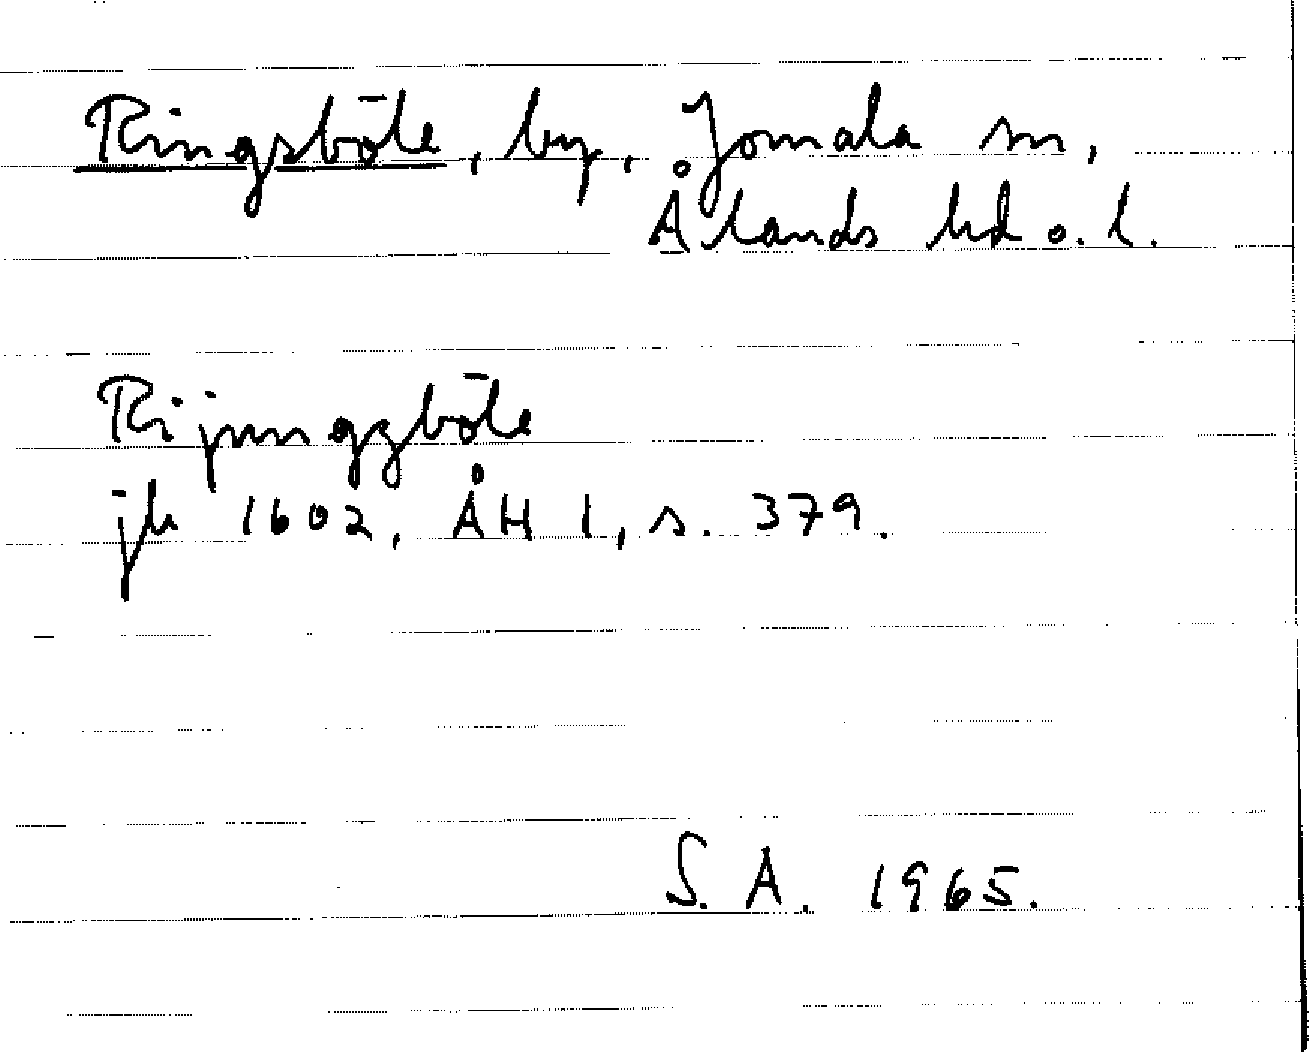 Ringsböle, by, Jomala sn,
Ålands hd o. l.
Rijunngzböle
jb 1602, ÅH 1, s. 379.
S. A. 1965.